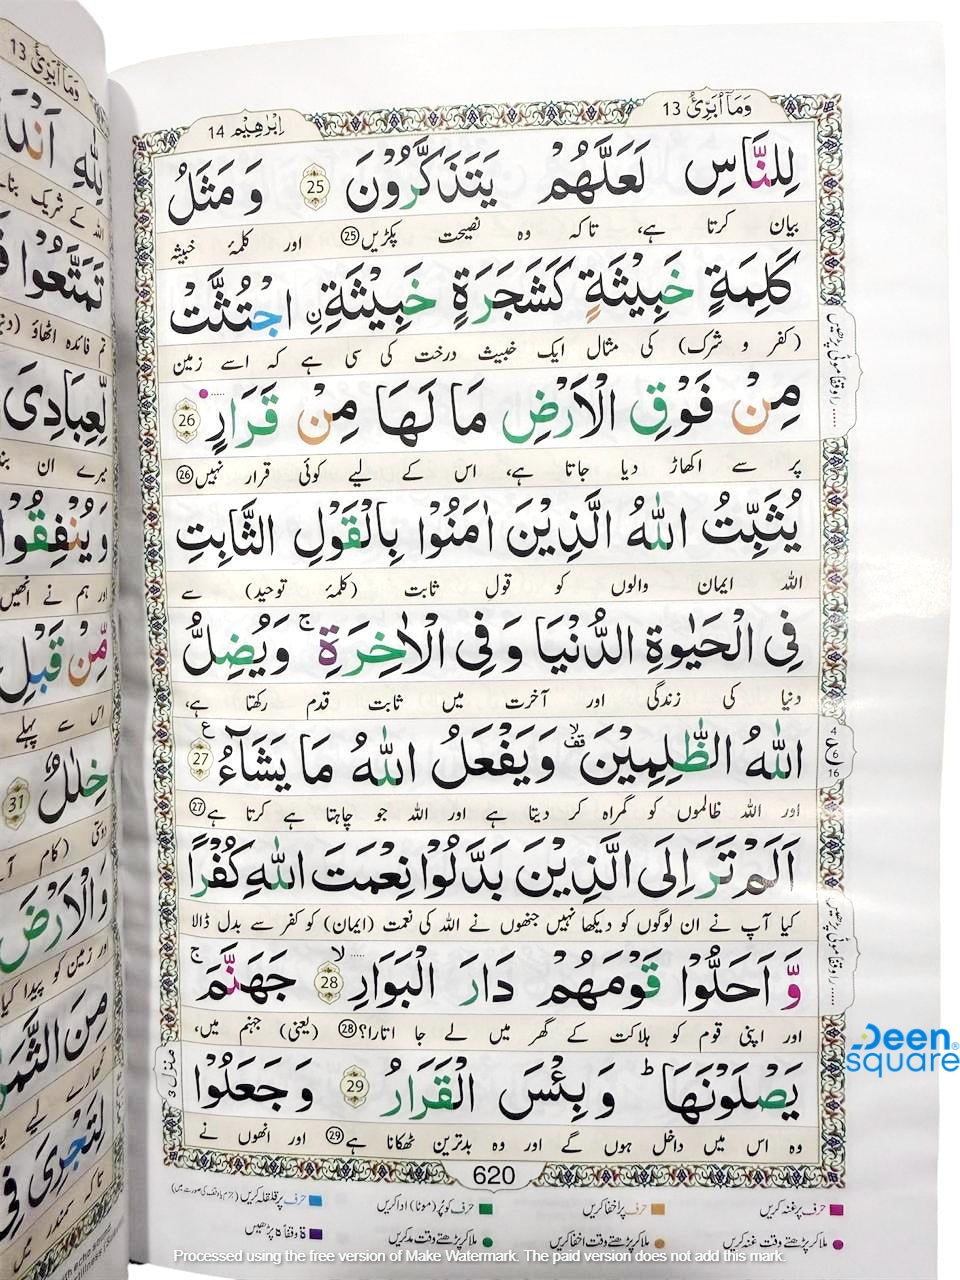 اِبْرٰهِيْم 14
وَمَاۤ اُبَرِّئُ 13
لِلنَّاسِ لَعَلَّهُمْ يَتَذَكَّرُوْنَ 25 وَ مَثَلُ
بیان کرتا ہے، تاکہ وہ نصیحت پکڑیں 25 اور کلمۂ خبیثہ
كَلِمَةٍ خَبِيْثَةٍ كَشَجَرَةٍ خَبِيْثَةِ ن ِاجْتُثَّتْ
(کفر و شرک) کی مثال ایک خبیث درخت کی سی ہے کہ اسے زمین
مِنْ فَوْقِ الْاَرْضِ مَا لَهَا مِنْ قَرَارٍ 26
پر سے اکھاڑ دیا جاتا ہے، اس کے لیے کوئی قرار نہیں 26
يُثَبِّتُ اللّٰهُ الَّذِيْنَ اٰمَنُوْا بِالْقَوْلِ الثَّابِتِ
اللہ ایمان والوں کو قول ثابت (کلمۂ توحید) سے
فِى الْحَيٰوةِ الدُّنْيَا وَ فِى الْاٰخِرَةِ ۚ وَ يُضِلُّ
دنیا کی زندگی اور آخرت میں ثابت قدم رکھتا ہے،
اللّٰهُ الظّٰلِمِيْنَ وَ يَفْعَلُ اللّٰهُ مَا يَشَآءُ 27
اور اللہ ظالموں کو گمراہ کر دیتا ہے اور اللہ جو چاہتا ہے کرتا ہے 27
4
ع 6
16
اَلَمْ تَرَ اِلَى الَّذِيْنَ بَدَّلُوْا نِعْمَتَ اللّٰهِ كُفْرًا
کیا آپ نے ان لوگوں کو دیکھا نہیں جنھوں نے اللہ کی نعمت (ایمان) کو کفر سے بدل ڈالا
وَّ اَحَلُّوْا قَوْمَهُمْ دَارَ الْبَوَارِ 28 جَهَنَّمَ ۚ
اور اپنی قوم کو ہلاکت کے گھر میں لے جا اتارا؟ 28 (یعنی) جہنم میں،
يَصْلَوْنَهَا ؕ وَ بِئْسَ الْقَرَارُ 29 وَ جَعَلُوْا
وہ اس میں داخل ہوں گے اور وہ بدترین ٹھکانا ہے 29 اور انھوں نے
منزل 3
620
حرف پر غنہ کریں
حرف پر اخفا کریں
حرف کو پُر (موٹا) ادا کریں
حرف پر قلقلہ کریں
ملا کر پڑھتے وقت غنہ کریں
ملا کر پڑھتے وقت اخفا کریں
ملا کر پڑھتے وقت مد کریں
ۃ وقفاً ہ پڑھیں
وَمَاۤ اُبَرِّئُ 13
لِلّٰهِ اَنْدَا
اللہ کے شریک بنا
تَمَتَّعُوْا
تم فائدہ اٹھاؤ (دن
لِّعِبَادِىَ
میرے ان بند
وَ يُنْفِقُوْا
اور ہم نے انھیں
مِّنْ قَبْلِ
اس سے پہلے
خِلٰلٌ 31
دوستی (کام آ
وَ الْاَرْضَ
اور زمین کو پیدا کیا
مِنَ الثَّمَرٰ
تمھارے لیے
لِتَجْرِىَ فِى
تاکہ سمندر میں
Deen square®
Processed using the free version of Make Watermark. The paid version does not add this mark.